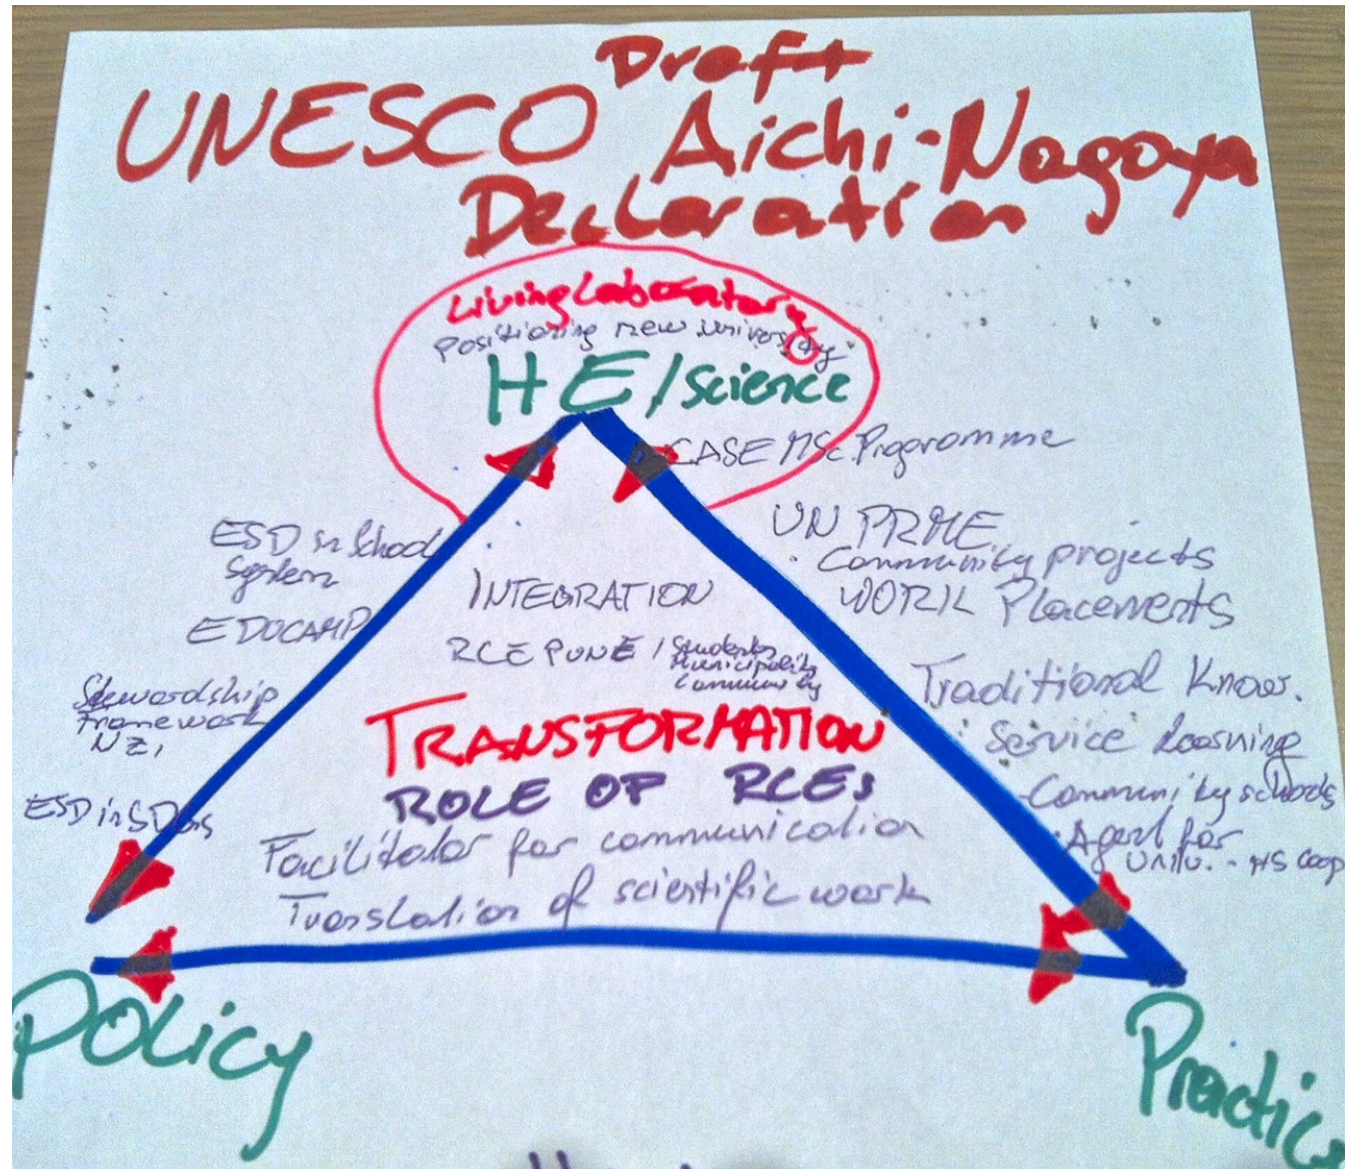 Draft
UNESCO Aichi-Nagoya
Declaration
Living Laboratory
Positioning new university
HE/Science
CASE MSc. Programme
UN PRME
Community projects
WORK Placements
Traditional Know.
Service Learning
Community schools
Agent for
Univ. - HS coop
ESD in School
System
EDUCAMP
Stewardship
Framework
NZ,
ESD in SDGs
INTEGRATION
RCE PUNE / Students
Municipality
Community
TRANSFORMATION
ROLE OF RCEs
Facilitator for communication
Translation of scientific work
Policy
Practic